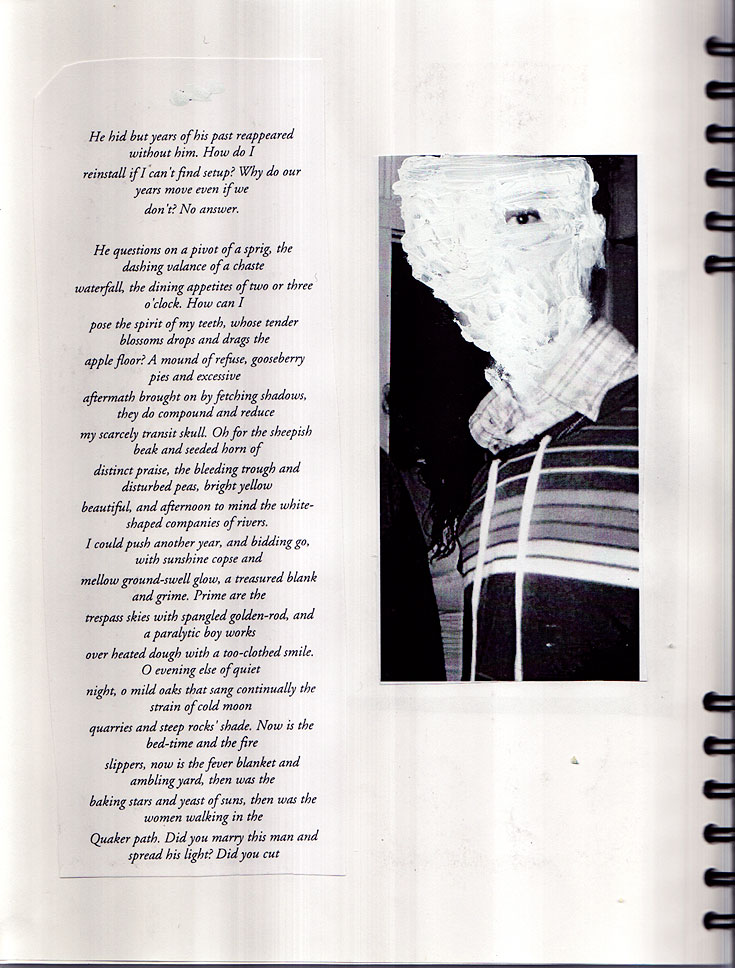 He hid but years of his past reappeared
without him. How do I
reinstall if I can't find setup? Why do our
years move even if we
don't? No answer.
He questions on a pivot of a sprig, the
dashing valance of a chaste
waterfall, the dining appetites of two or three
o'clock. How can I
pose the spirit of my teeth, whose tender
blossoms drops and drags the
apple floor? A mound of refuse, gooseberry
pies and excessive
aftermath brought on by fetching shadows,
they do compound and reduce
my scarcely transit skull. Oh for the sheepish
beak and seeded horn of
distinct praise, the bleeding trough and
disturbed peas, bright yellow
beautiful, and afternoon to mind the white-
shaped companies of rivers.
I could push another year, and bidding go,
with sunshine copse and
mellow ground-swell glow, a treasured blank
and grime. Prime are the
trespass skies with spangled golden-rod, and
a paralytic boy works
over heated dough with a too-clothed smile.
O evening else of quiet
night, o mild oaks that sang continually the
strain of cold moon
quarries and steep rocks' shade. Now is the
bed-time and the fire
slippers, now is the fever blanket and
ambling yard, then was the
baking stars and yeast of suns, then was the
women walking in the
Quaker path. Did you marry this man and
spread his light? Did you cut